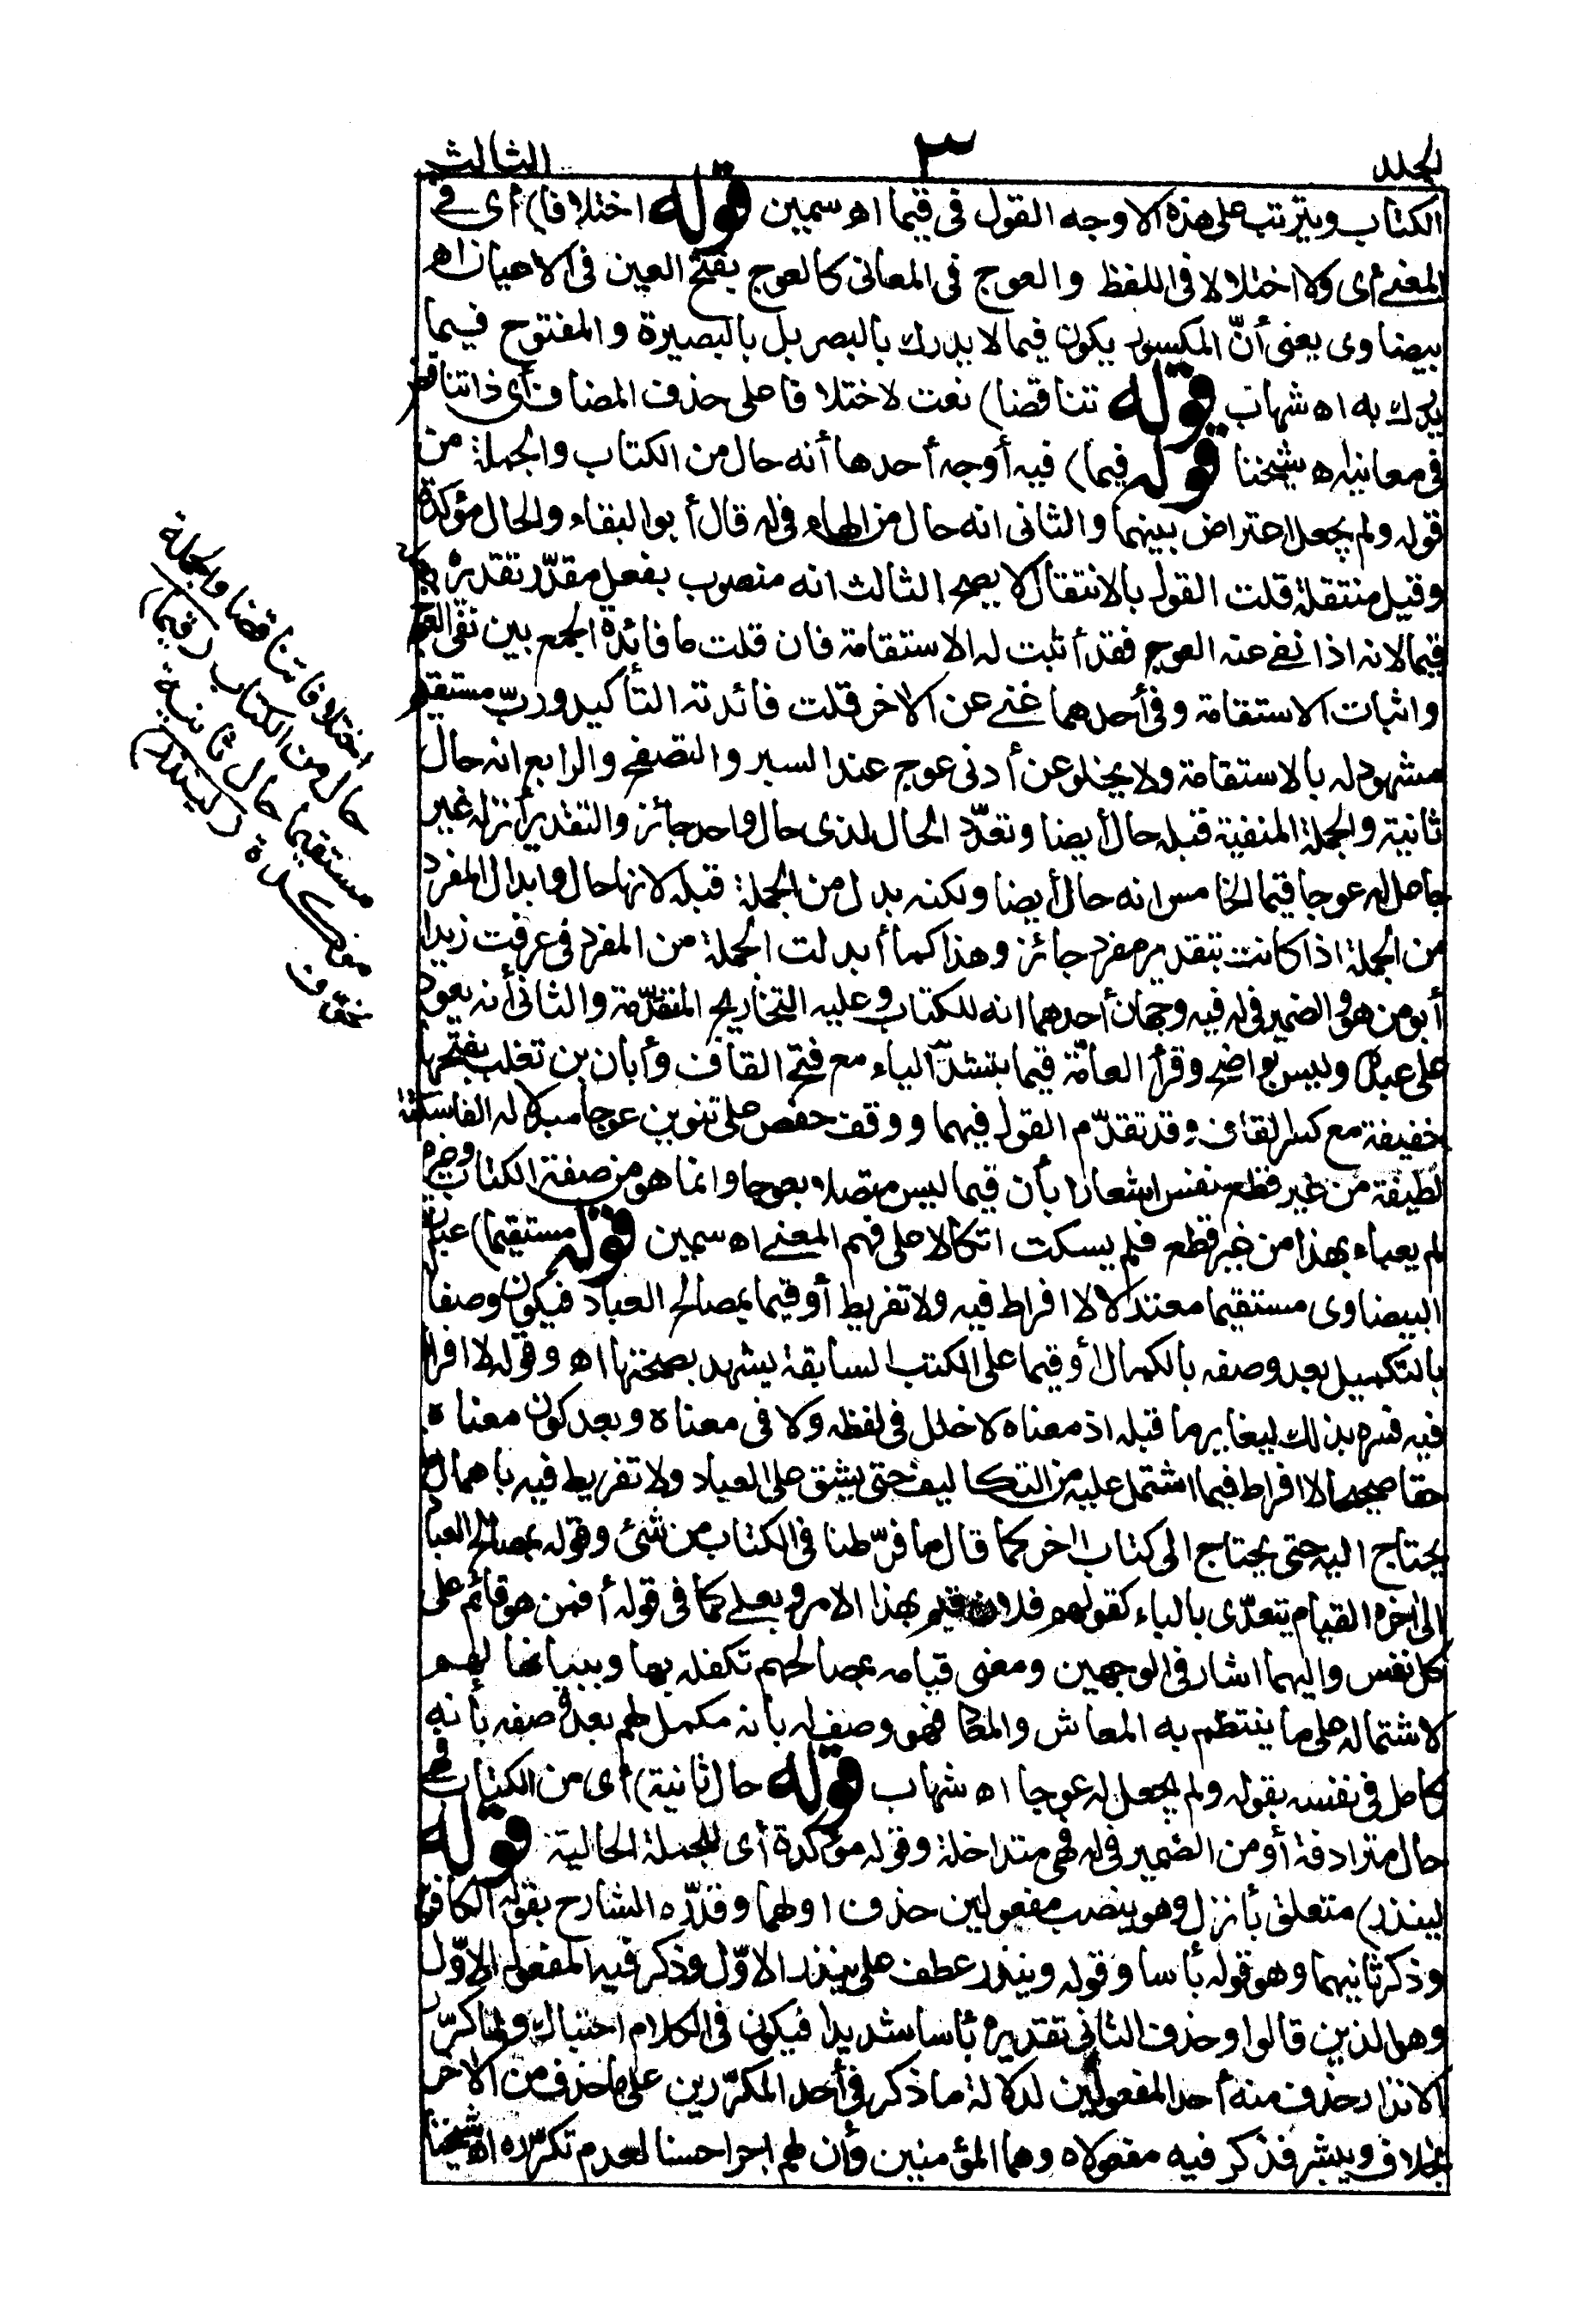 الجلد ٣ الثالث
الكتاب ويترتب على هذه الاوجه القول فى قيما اه سمين قوله اختلافا) أى فى
المعنى أى ولا اختلالا فى اللفظ والعوج فى المعانى كالعوج بفتح العين فى الاعيان اه
بيضاوى يعنى أنّ المكسور يكون فيما لا يدرك بالبصر بل بالبصيرة والمفتوح فيما
يدرك به اه شهاب قوله تناقضا) نعت لاختلافا على حذف المضاف أى ذا تناقض
فى معانيه اه شيخنا قوله قيما) فيه أوجه أحدها أنه حال من الكتاب والجملة من
قوله ولم يجعل اعتراض بينهما والثانى انه حال من الهاء فى له قال أبو البقاء والحال مؤكدة
وقيل منتقلة قلت القول بالانتقال لا يصح الثالث انه منصوب بفعل مقدّر تقديره جعله
قيما لانه اذا نفى عنه العوج فقد أثبت له الاستقامة فان قلت ما فائدة الجمع بين نفى العوج
واثبات الاستقامة وفى أحدهما غنى عن الاخر قلت فائدته التأكيد وربّ مستقيم
مشهود له بالاستقامة ولا يخلو عن أدنى عوج عند السبر والتصفح والرابع انه حال
ثانية والجملة المنفية قبله حال أيضا وتعدّد الحال لذى حال واحد جائز والتقدير أنزله غير
جاعل له عوجا قيما الخامس انه حال أيضا ولكنه بدل من الجملة قبله لانها حال وابدال المفرد
من الجملة اذا كانت بتقدير مفرد جائز وهذا كما أبدلت الجملة من المفرد فى عرفت زيدا
أبو من هو والضمير فى له فيه وجهان أحدهما انه للكتاب وعليه التخاريج المتقدّمة والثانى أنه يعود
على عبده وليس بواضح وقرأ العامّة قيما بتشديد الياء مع فتح القاف وأبان بن تغلب بفتحها
خفيفة مع كسر القاف وقد تقدّم القول فيهما ووقف حفص على تنوين عوجا مبدلا له ألفا سكتة
لطيفة من غير قطع نفس اشعارا بأن قيما ليس متصلا بعوجا وانما هو من صفة الكتاب وغيره
لم يعباء بهذا من غير قطع فلم يسكت اتكالا على فهم المعنى اه سمين قوله مستقيما) عبارة
البيضاوى مستقيما معتدلا لا افراط فيه ولا تفريط أو قيما بمصالح العباد فيكون وصفا
بالتكميل بعد وصفه بالكمال أو قيما على الكتب السابقة يشهد بصحتها اه وقوله لا افراط
فيه فسره بذلك ليغاير ما قبله اذ معناه لا خلل فى لفظه ولا فى معناه وبعد كون معناه
حقا صحيحا لا افراط فيما اشتمل عليه من التكاليف حتى يشق على العباد ولا تفريط فيه باهمال ما
يحتاج اليه حتى يحتاج الى كتاب اخر كما قال ما فرّطنا فى الكتاب من شئ وقوله بمصالح العباد
الى اخره القيام يتعدّى بالباء كقولهم فلان قيم بهذا الامر وبعلى كما فى قوله أفمن هو قائم على
كل نفس واليهما اشار فى الوجهين ومعنى قيامه بمصالحهم تكفله بها وببيانها لهم
لاشتماله على ما ينتظم به المعاش والمعاد فهو وصف له بانه مكمل لهم بعد وصفه بأنه
كامل فى نفسه بقوله ولم يجعل له عوجا اه شهاب قوله حال ثانية) أى من الكتاب فهى
حال مترادفة أو من الضمير فى له فهى متداخلة وقوله مؤكدة أى للجملة الحالية قوله
لينذر) متعلق بأنزل وهو ينصب مفعولين حذف اولهما وقدّره الشارح بقوله الكافرين
وذكر ثانيهما وهو قوله بأسا وقوله وينذر عطف على لينذر الاوّل وذكر فيه المفعول الاوّل
وهو الذين قالوا وحذف الثانى تقديره بأسا شديدا فيكون فى الكلام احتباك ولما كرّر
الانذار حذف منه أحد المفعولين لدلالة ما ذكر فى أحد المكرّرين على ما حذف من الاخر
بخلاف ويبشر فذكر فيه مفعولاه وهما المؤمنين وأن لهم اجرا حسنا لعدم تكرّره اه شيخنا
اختلافا تناقضا والجملة
حال من الكتاب (قيما)
مستقيما حال ثانية
مؤكدة (لينذر)
يخوف